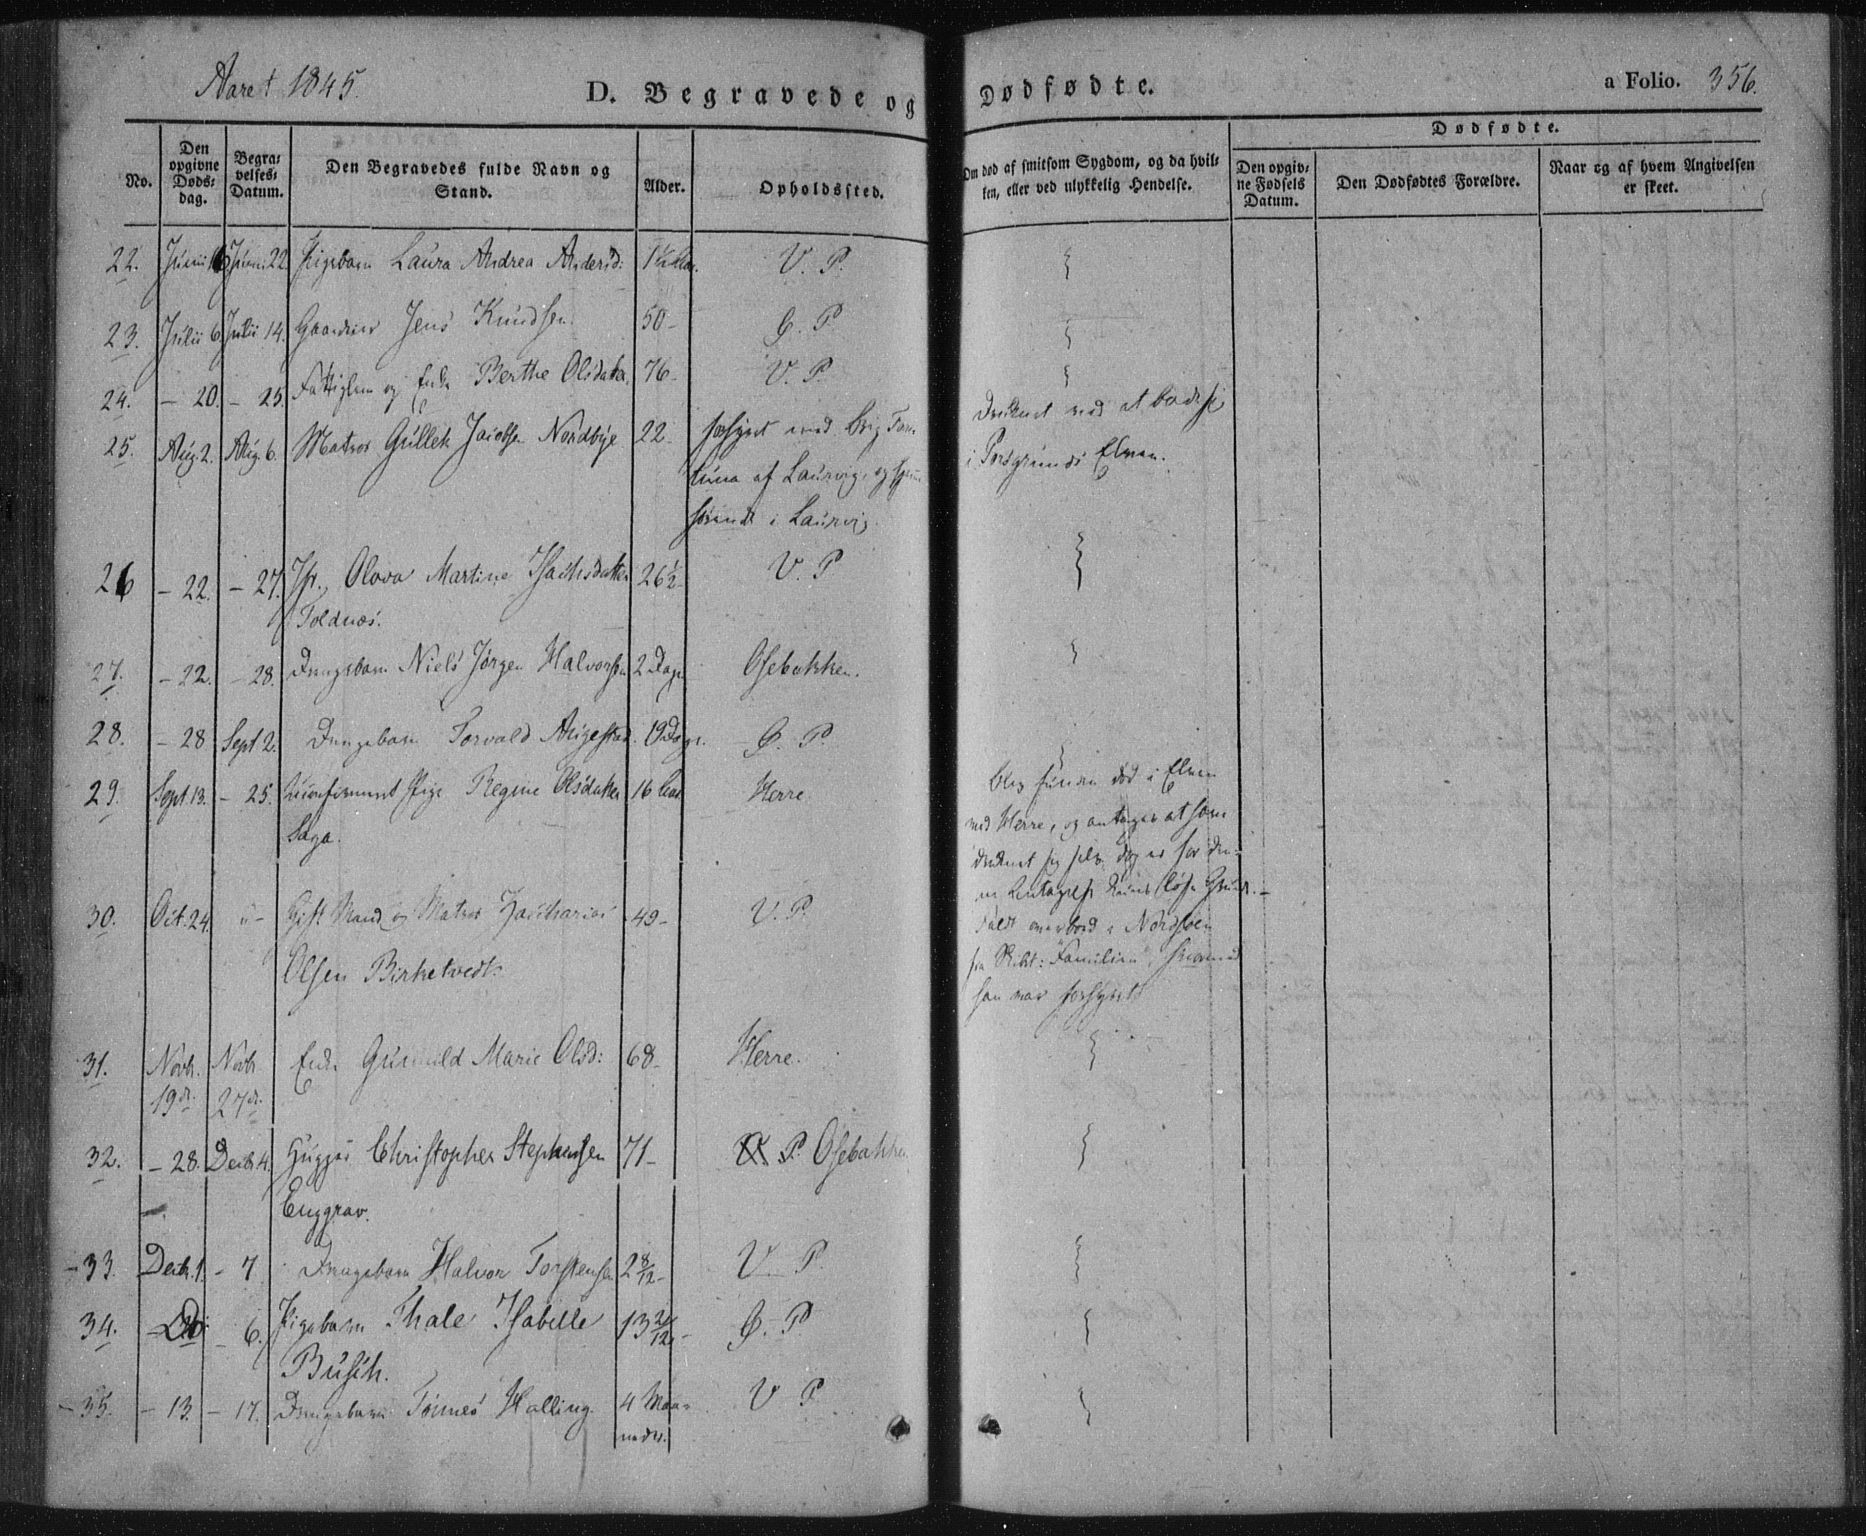 Aaret 1845.
D. Begravede og Dødfødte.
a Folio. 356.
No.
Den opgivne Døds-dag.
Begra-velses-Datum.
Den Begravedes fulde Navn og Stand.
Alder.
Opholdssted.
Om død af smitsom Sygdom, og da hvil-ken, eller ved ulykkelig Hendelse.
Dødfødte.
Den opgiv-ne Fødsels Datum.
Den Dødfødtes Forældre.
Naar og af hvem Angivelsen er skeet.
22. Junii 16 Junii 22. Pigebarn Laura Andrea Andersd: V. P.
23. Julii 6 Julii 14. Gaardmr Jens Knudsen 50- G. P
24. - 20. - 25. Fattiglem og Enke Berthe Olsdatter 76- V. P.
25. Aug. 2. Aug. 6. Matros Gullek Jacobsen Nordbye 22- forhyret med Brig For-
tuna af Laurvig, og hjemme-
hørende i Laurvig.
Druknet ved at bade sig
i Porsgrunds Elven.
26 - 22. - 27. Jfr. Olava Martine Isachsdatter 26½- V. P
Toldnæs.
27. - 22. - 28. Drengebarn Niels Jørgen Halvorsen 2 Dage Osebakken.
28. - 28 Sept 2. Drengebarn Torvald Augestad. 19 Dage. Ø. P.
29. Sept. 13. - 25. Uconfirmeret Pige Regine Olsdatter 16 Aar Herre
Saga.
Blev funden død i Elven
ved Herre, og antages at have
druknet sig selv, dog er for den-
ne Antagelse kuns løse Grunde.
30. Oct. 24. Gift Mand og Matros Zacharias 49- V. P.
Olsen Birketvedt.
Faldt overbord i Nordsøen
fra Skibet: "Familien", hvormed
han var forhyret.
31. Novb. Novb. Enke Gunnild Marie Olsd: 68- Herre.
19de. 27de.
32. - 28. Decbr 4. Huggos Christopher Stephensen 71- P. Osebakken
Enggrav.
33. Decbr. 1. - 7 Drengebarn Halvor Torstensen 2 8/12- V P.
34. - Do - 6. Pigebarn Thale Isabelle 13 2/12- Ø. P
Busch.
35. - 13. - 17. Drengebarn Tønnes Halling. 4 Maa- V P
neder.